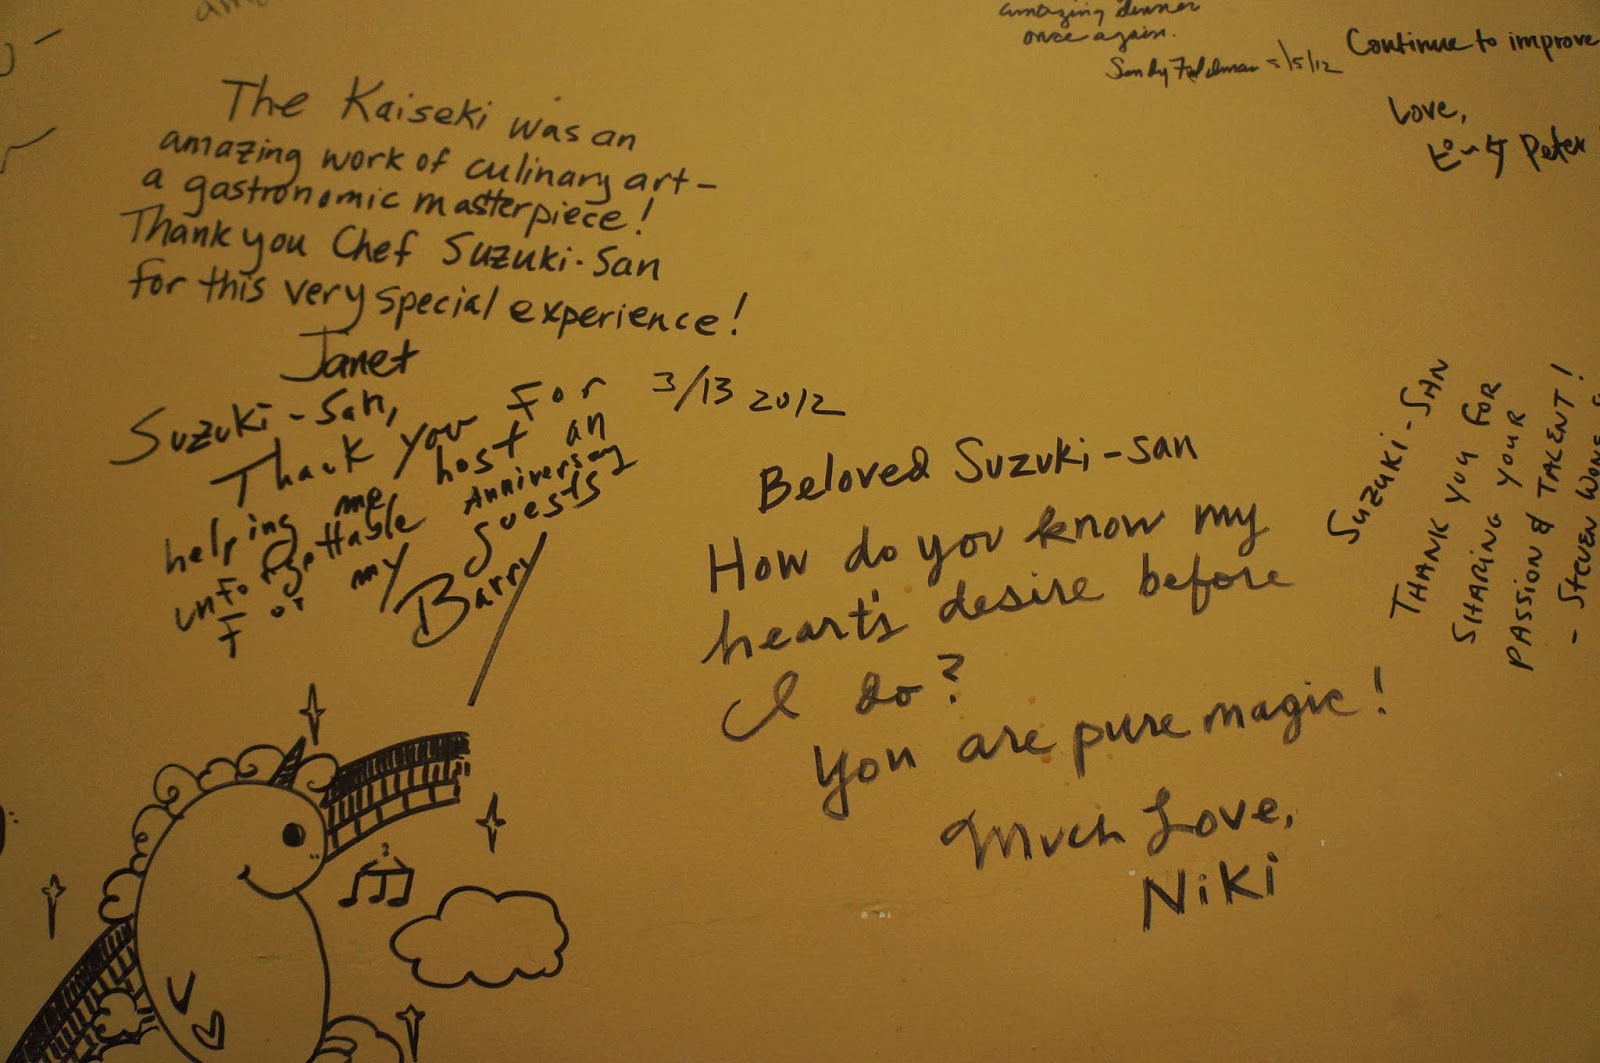 amazing dinner
once again.
Sandy Feldman 5/5/12
Continue to improve
Love,
ピーター Peter
The Kaiseki was an
amazing work of culinary art-
a gastronomic masterpiece!
Thank you Chef Suzuki-San
for this very special experience!
Janet
Suzuki-San,
Thank you for
helping me host an
unforgettable Anniversary
For my guests
Barry
3/13 2012
Beloved Suzuki-san
How do you know my
heart's desire before
I do?
You are pure magic!
Much Love,
Niki
SUZUKI-SAN
THANK YOU FOR
SHARING YOUR
PASSION & TALENT!
- STEVEN WONG